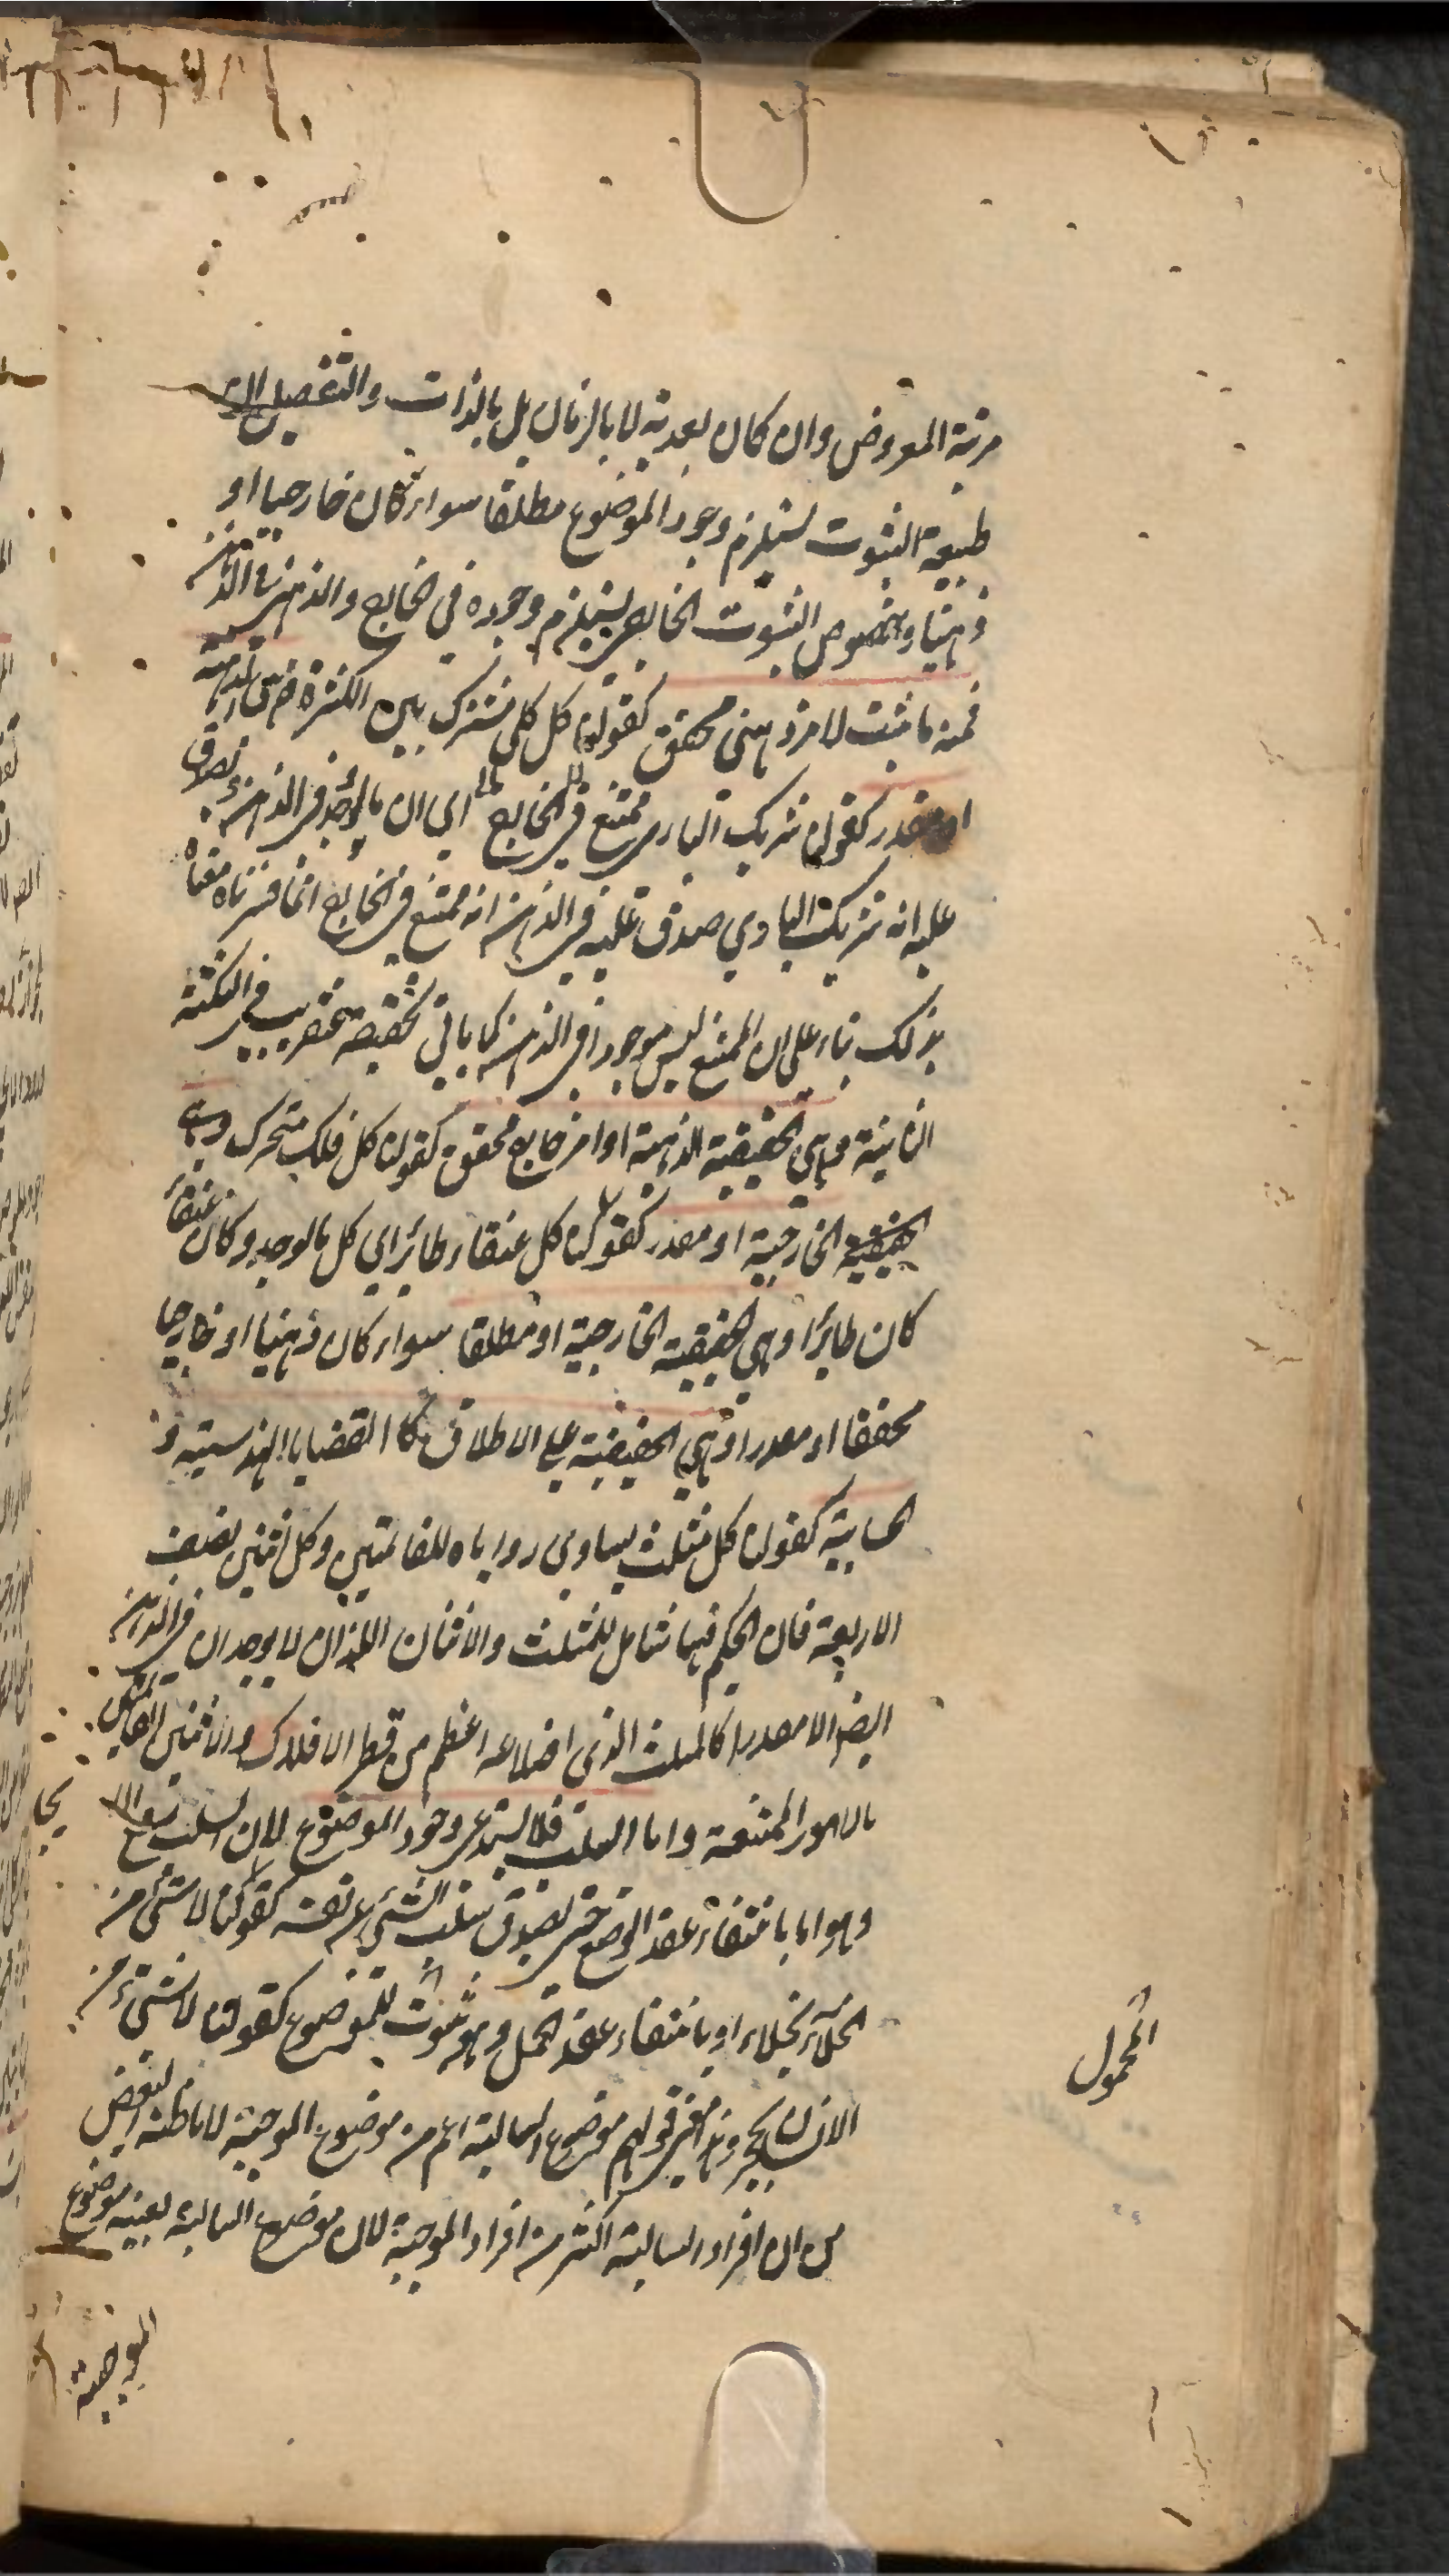 مرتبة المعروض وان كان بعدية لا بالزمان بل بالذات والتفصيل ان
طبيعة الثبوت يستلزم وجود الموضوع مطلقا سواء كان خارجيا او
ذهنيا وخصوص الثبوت الخارجي يستلزم وجوده في الخارج والذهني في الذهن
فمنه ما ثبت لامر ذهني محقق كقولنا كل كلي مشترك بين الكثرة فهي الذهنية
او مقدر كقولنا شريك الباري ممتنع في الخارج اي ان ما لو وجد في الذهن وصدق
عليه انه شريك الباري صدق عليه في الذهن انه ممتنع في الخارج انما فسرناه
بذلك بناء على ان الممتنع ليس موجودا في الذهن كما ياتي تحقيقه عنقريب في النكتة
الثانية وهي الحقيقية الذهنية او امر خارجي محقق كقولنا كل فلك متحرك وهي
الحقيقية الخارجية او مقدر كقولنا كل عنقاء طائر اي كل ما لو وجد وكان عنقاء
كان طائرا وهي الحقيقية الخارجية او مطلقا سواء كان ذهنيا او خارجيا
محققا او مقدرا وهي الحقيقية على الاطلاق كالقضايا الهندسية و
الحسابية كقولنا كل مثلث يساوي زواياه للقائمتين وكل اثنين نصف
الاربعة فان الحكم فيها شامل للمثلث والاثنان اللذان لا يوجدان في الذهن
ايضا الا مقدرا كالمثلث الذي اضلاعه اعظم من قطر الافلاك والاثنين القائمتين
بالامور الممتنعة واما السلب فلا يستدعي وجود الموضوع لان السلب
وهو اما بانتفاء عقد الوضع حتى يصدق سلب الشيء عن نفسه كقولنا لا شيء من
الخلاء بخلاء او بانتفاء عقد الحمل وهو ثبوت للموضوع كقولنا لا شيء من
المحمول
الانسان بحجر وهذا معنى قولهم موضوع السالبة اعم من موضوع الموجبة لا ما ظنه البعض
من ان افراد السالبة اكثر من افراد الموجبة لان موضوع السالبة بعينه موضوع
الموجبة